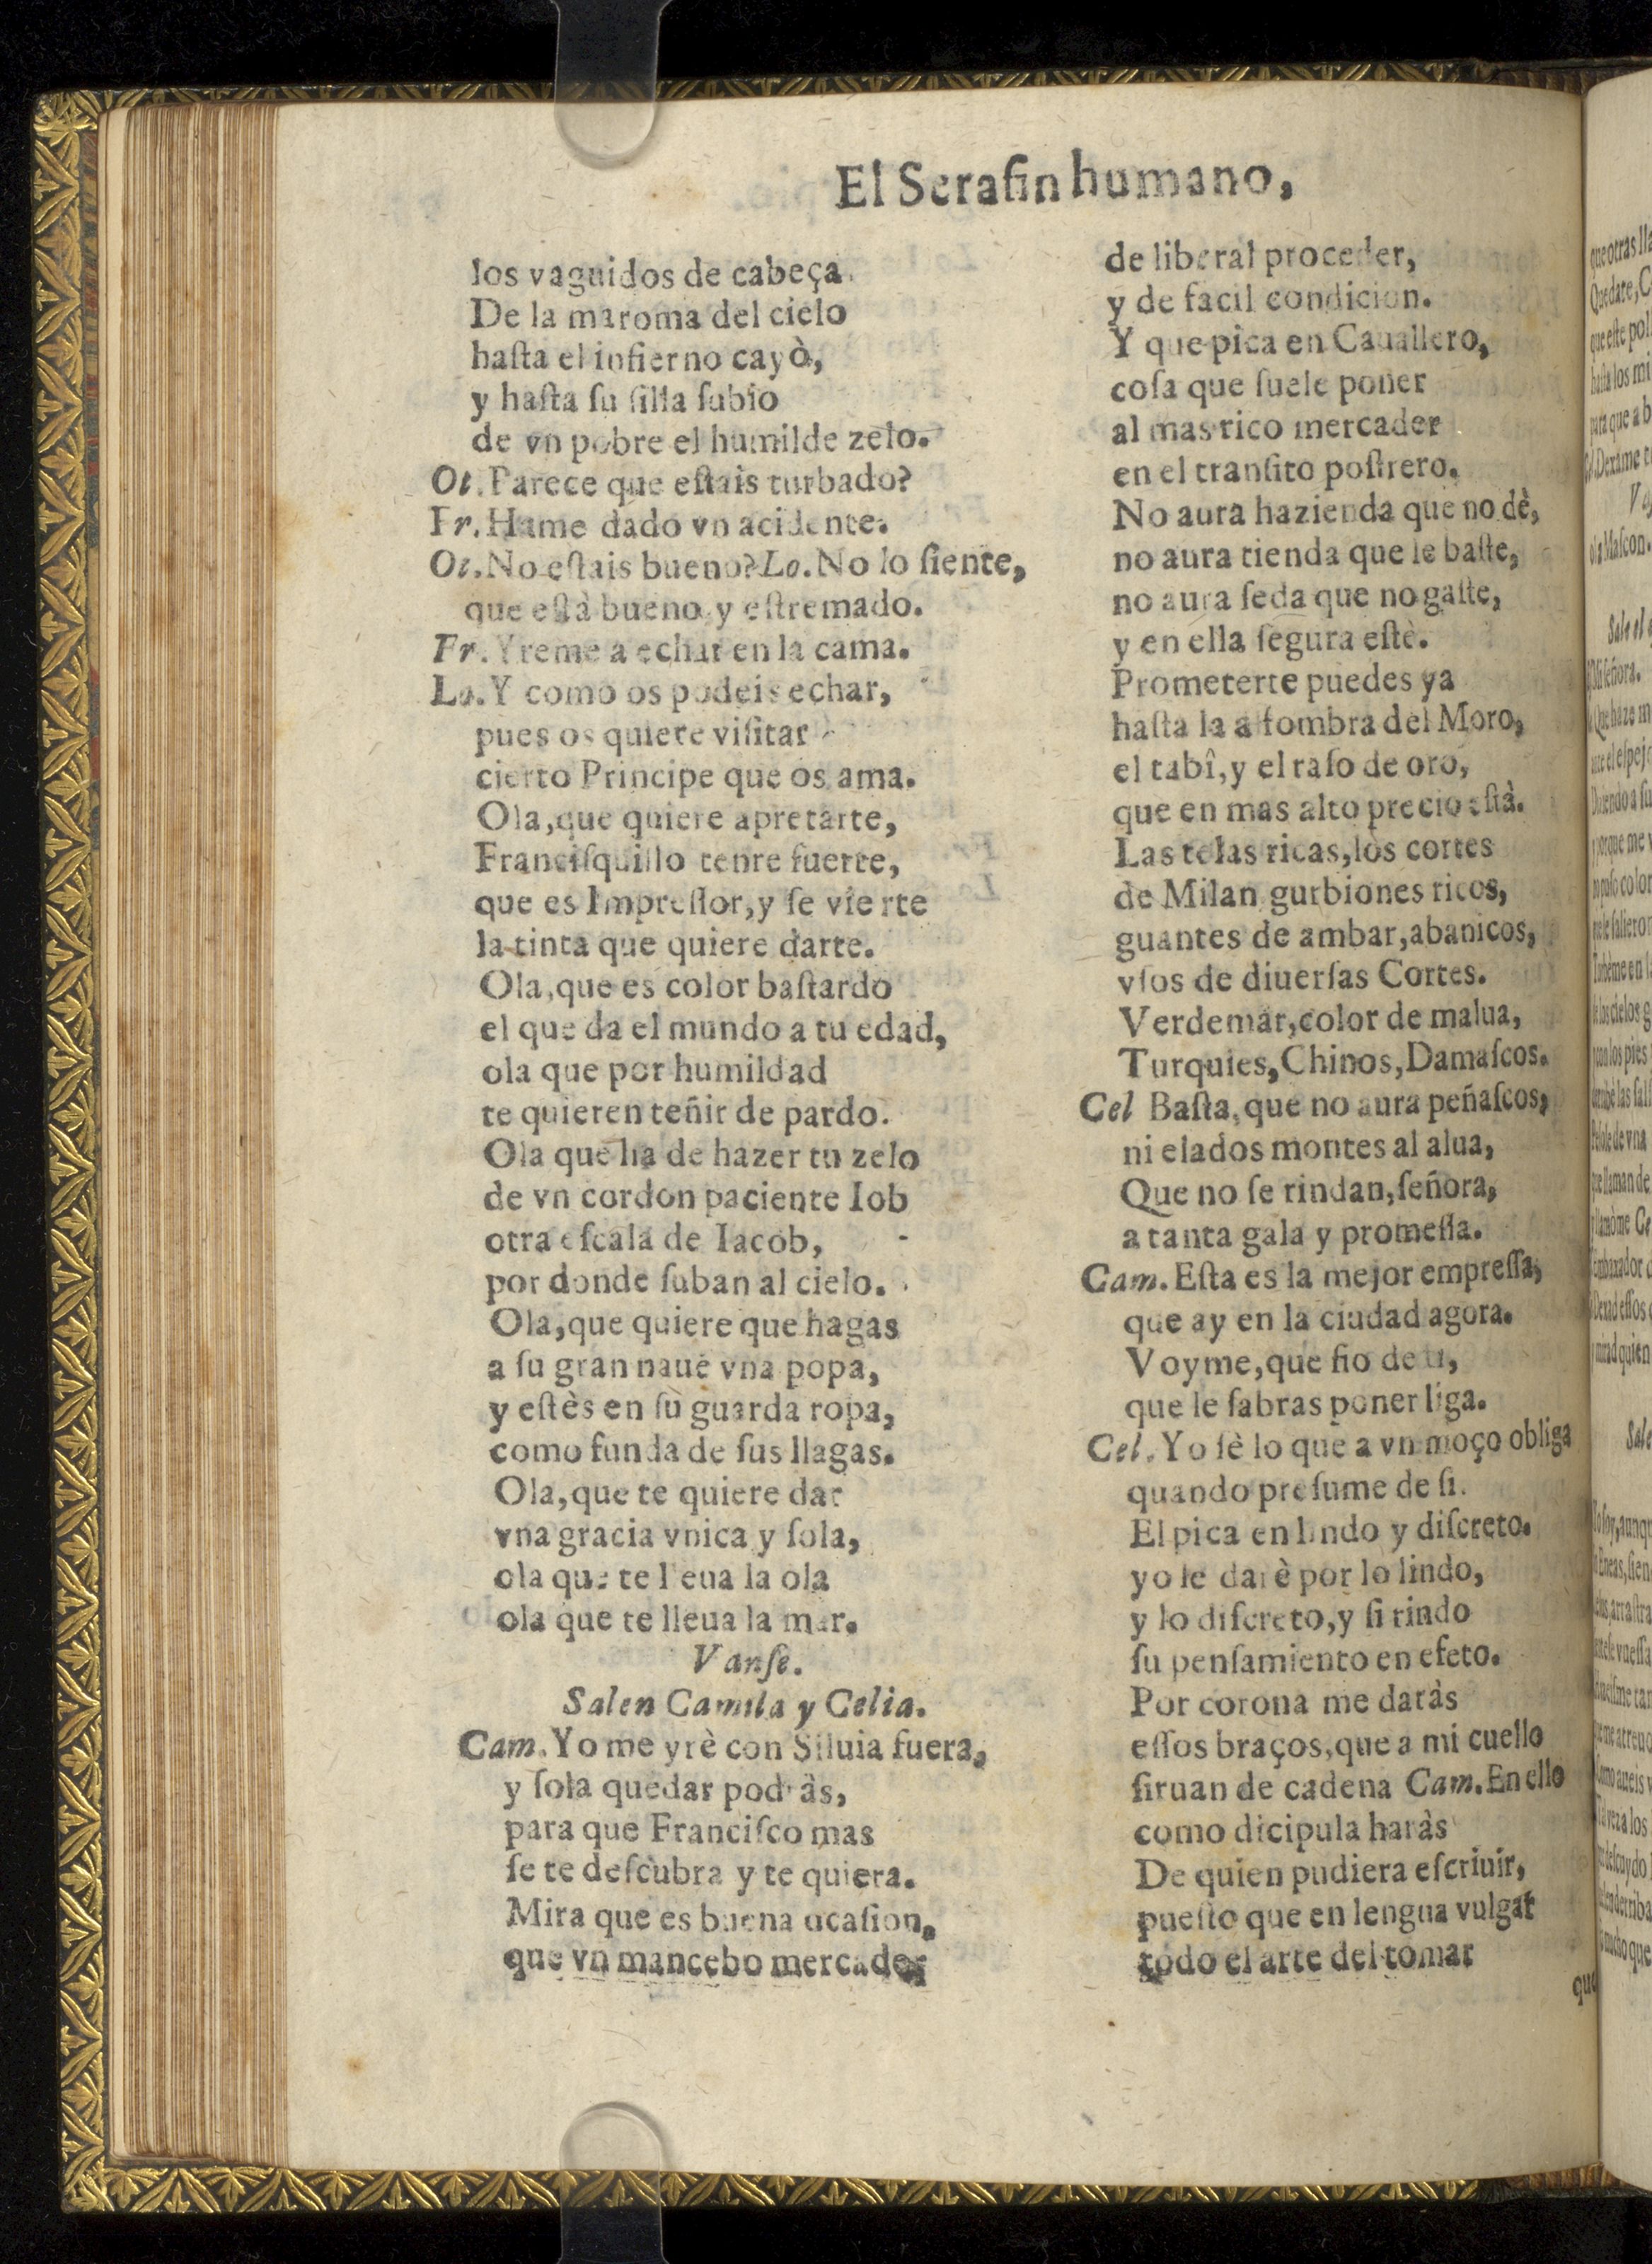 El Serafin humano,
los vaguidos de cabeça.
De la maroma del cielo
haſta el infierno cayò,
y haſta ſu ſilla ſubio
de vn pobre el humilde zelo.
Ot. Parece que eſtais turbado?
Fr. Hame dado vn acidente.
Ot. No eſtais bueno? Lo. No lo ſiente,
que eſtà bueno y eſtremado.
Fr. Yreme a echar en la cama.
Lo. Y como os podeis echar,
pues os quiere viſitar
cierto Principe que os ama.
Ola, que quiere apretarte,
Franciſquillo tenre fuerte,
que es Impreſſor, y ſe vierte
la tinta que quiere darte.
Ola, que es color baſtardo
el que da el mundo a tu edad,
ola que por humildad
te quieren teñir de pardo.
Ola que ha de hazer tu zelo
de vn cordon paciente Iob
otra eſcala de Iacob,
por donde ſuban al cielo.
Ola, que quiere que hagas
a ſu gran naue vna popa,
y eſtès en ſu guarda ropa,
como funda de ſus llagas.
Ola, que te quiere dar
vna gracia vnica y ſola,
ola que te lleua la ola
ola que te lleua la mar.
Vanſe.
Salen Camila y Celia.
Cam. Yo me yrè con Siluia fuera,
y ſola quedar podràs,
para que Franciſco mas
ſe te deſcubra y te quiera.
Mira que es buena ocaſion,
que vn mancebo mercader
de liberal proceder,
y de facil condicion.
Y que pica en Cauallero,
coſa que ſuele poner
al mas rico mercader
en el tranſito poſtrero.
No aura hazienda que no dè,
no aura tienda que le baſte,
no aura ſeda que no gaſte,
y en ella ſegura eſtè.
Prometerte puedes ya
haſta la alfombra del Moro,
el tabî, y el raſo de oro,
que en mas alto precio eſtà.
Las telas ricas, los cortes
de Milan gurbiones ricos,
guantes de ambar, abanicos,
vſos de diuerſas Cortes.
Verdemar, color de malua,
Turquies, Chinos, Damaſcos.
Cel Baſta, que no aura peñaſcos,
ni elados montes al alua,
Que no ſe rindan, ſeñora,
a tanta gala y promeſſa.
Cam. Eſta es la mejor empreſſa,
que ay en la ciudad agora.
Voyme, que fio de ti,
que le ſabras poner liga.
Cel. Yo ſè lo que a vn moço obliga
quando preſume de ſi.
El pica en lindo y diſcreto.
yo le darè por lo lindo,
y lo diſcreto, y ſi rindo
ſu penſamiento en efeto.
Por corona me daràs
eſſos braços, que a mi cuello
ſiruan de cadena Cam. En ello
como dicipula haràs
De quien pudiera eſcriuir,
pueſto que en lengua vulgar
todo el arte del tomar
que